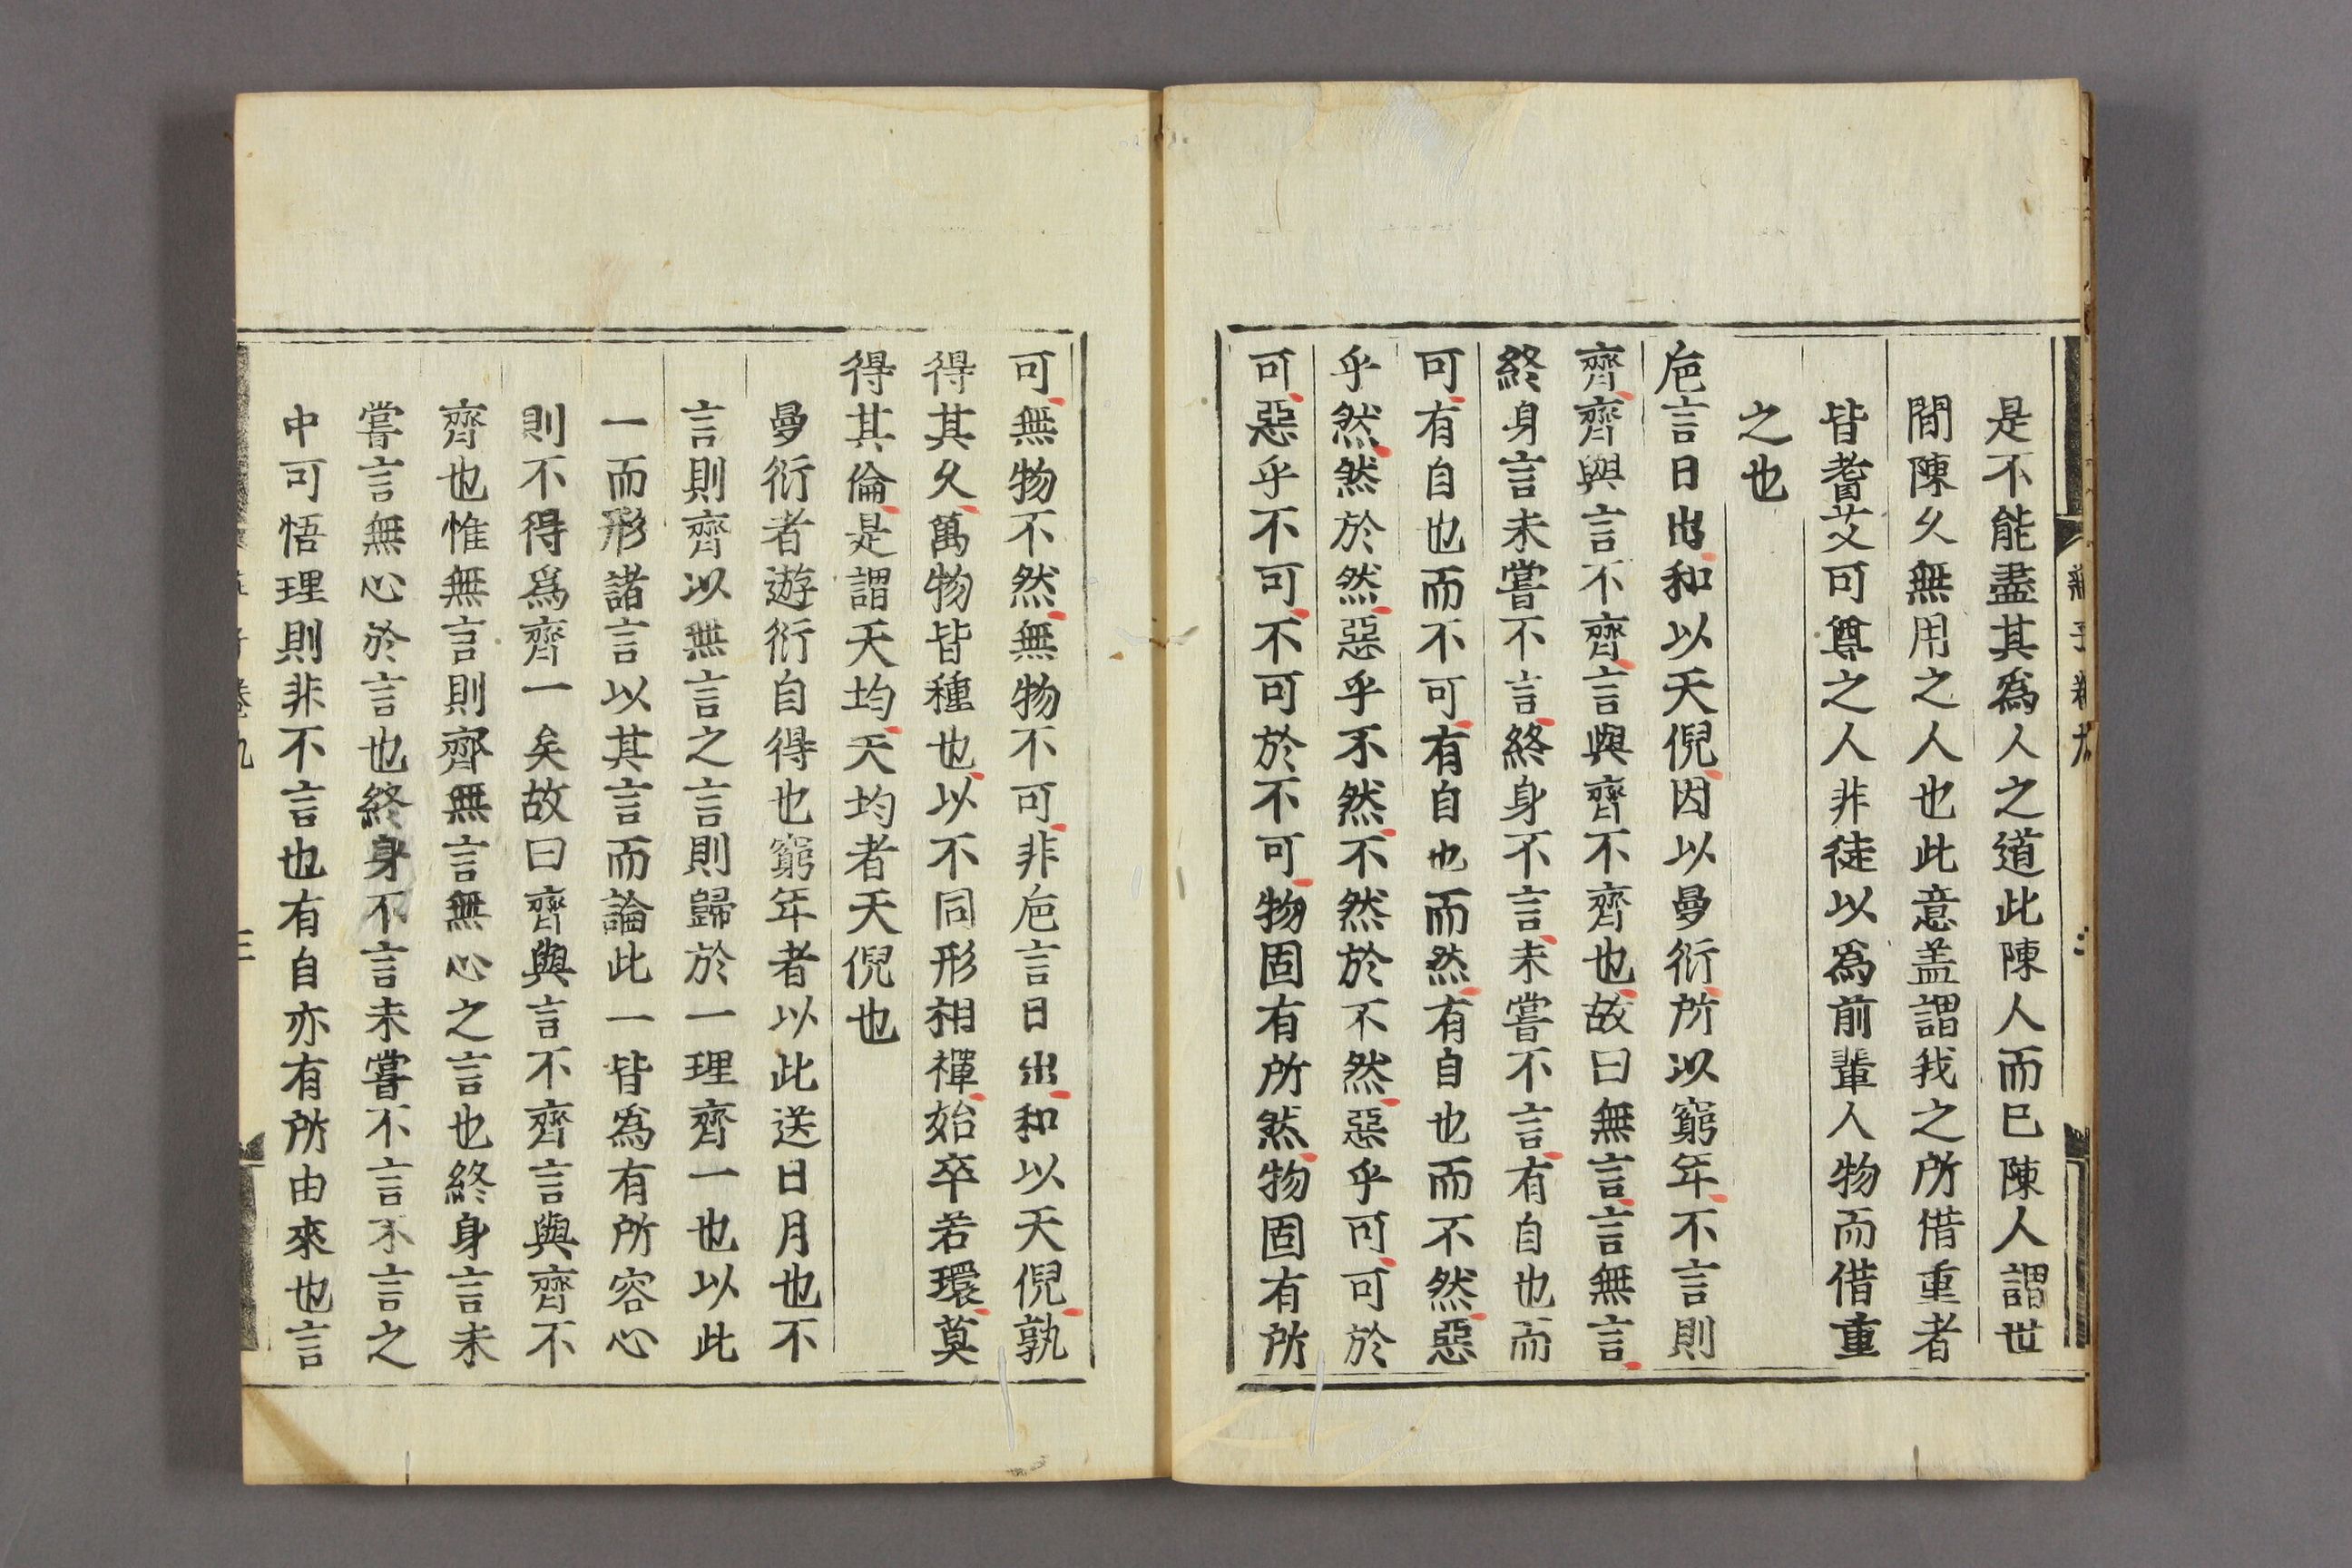 是不能盡其爲人之道此陳人而已陳人謂世
間陳久無用之人也此意盖謂我之所借重者
皆耆艾可尊之人非徒以爲前輩人物而借重
之也
巵言日出和以天倪因以曼衍所以窮年不言則
齊齊與言不齊言與齊不齊也故曰無言言無言
終身言未嘗不言終身不言未嘗不言有自也而
可有自也而不可有自也而然有自也而不然惡
乎然然於然惡乎不然不然於不然惡乎可可於
可惡乎不可不可於不可物固有所然物固有所
可無物不然無物不可非巵言日出和以天倪孰
得其久萬物皆種也以不同形相禪始卒若環莫
得其倫是謂天均天均者天倪也
曼衍者遊衍自得也窮年者以此送日月也不
言則齊以無言之言則歸於一理齊一也以此
一而形諸言以其言而論此一皆爲有所容心
則不得爲齊一矣故曰齊與言不齊言與齊不
齊也惟無言則齊無言無心之言也終身言未
嘗言無心於言也終身不言未嘗不言不言之
中可悟理則非不言也有自亦有所由來也言